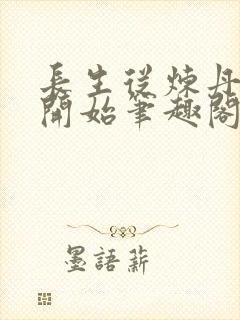 長生從煉丹
開始筆趣閣
墨語薪